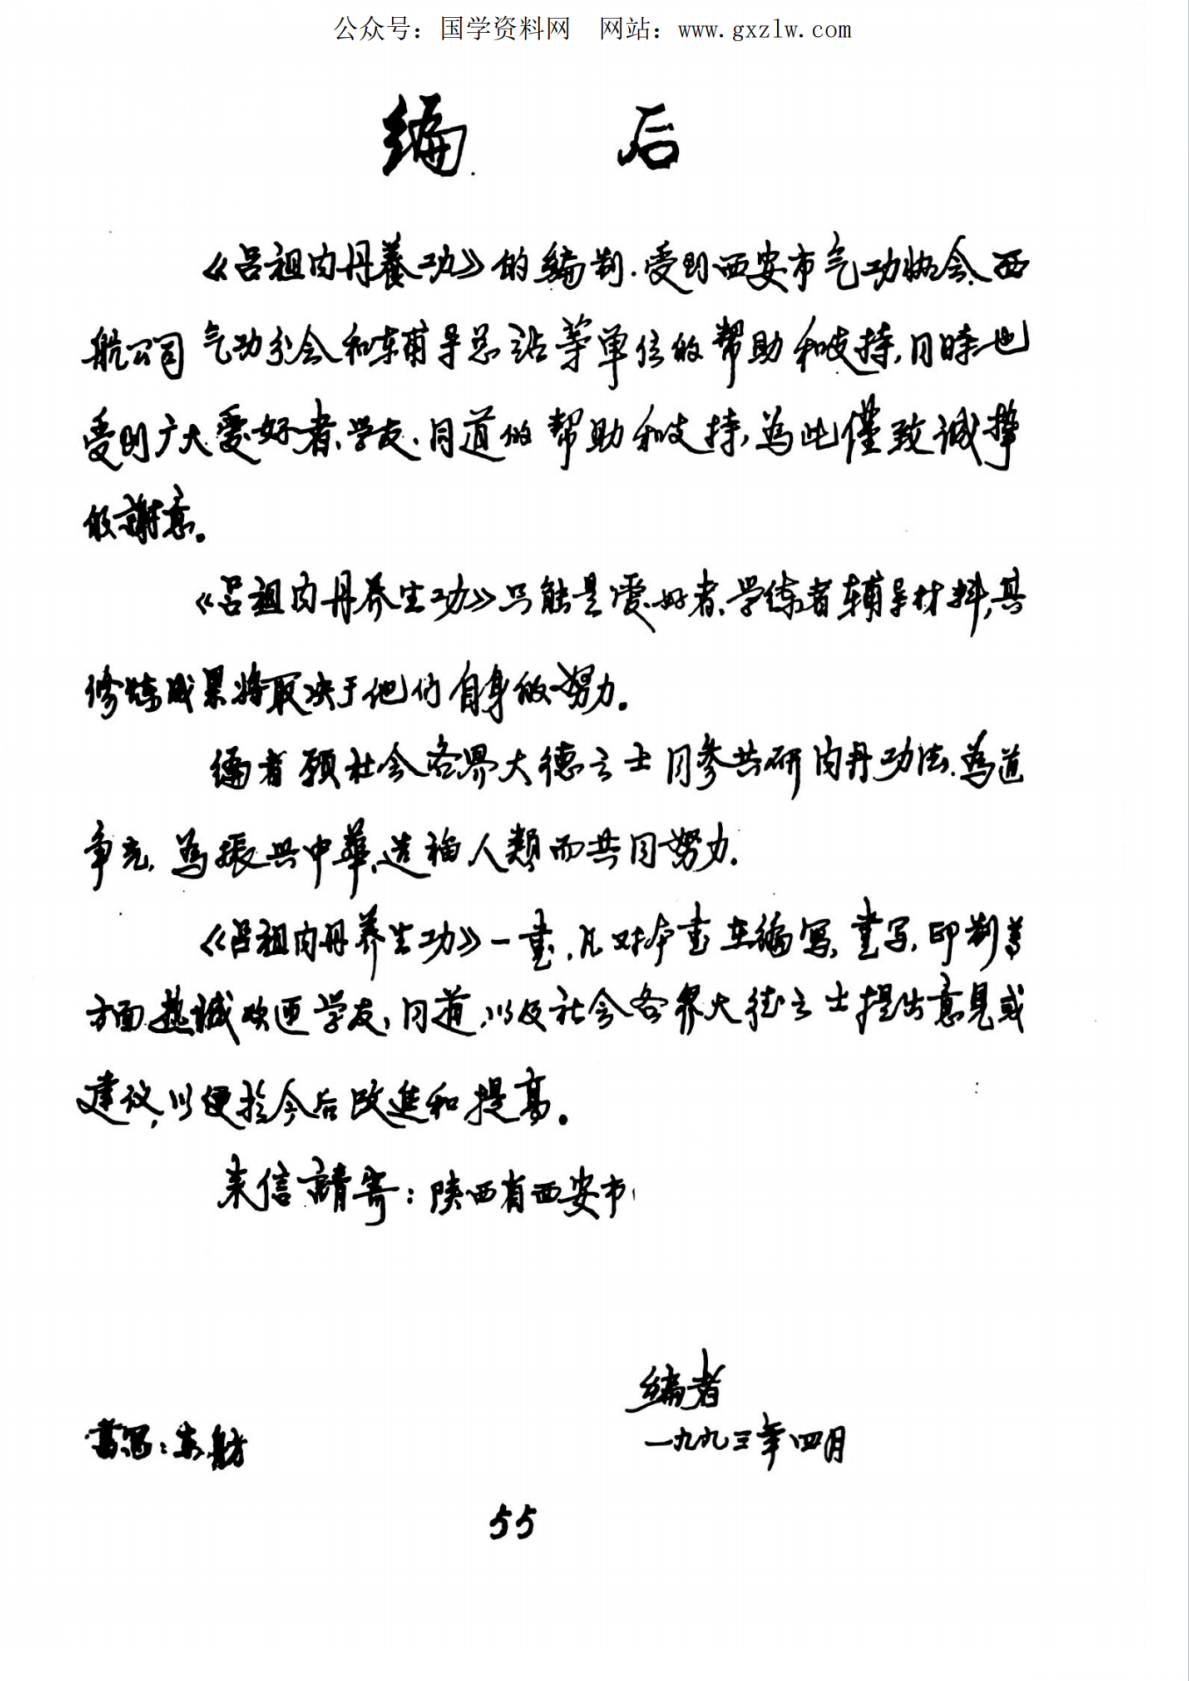 公众号：国学资料网　网站：www.gxzlw.com
编　后
《吕祖内丹養功》的编制.受到西安市气功协会、西
航公司气功分会和东辅导总站等单位的帮助和支持,同時也
受到广大爱好者、学友、同道的帮助和支持,為此僅致诚挚
的謝意。
《吕祖内丹养生功》只能是爱好者、学练者辅导材料,其
修炼成果将取决于他们自身的努力。
编者願社会各界大德之士同参共研内丹功法.為道
争光,為振兴中華,造福人類而共同努力.
《吕祖内丹养生功》一書,凡对本書在编写,書写,印制等
方面,热诚欢迎学友,同道,以及社会各界大德之士提出意見或
建议,以便於今后改進和提高。
来信請寄：陕西省西安市
编者
一九九三年四月
書写：朱舫
55